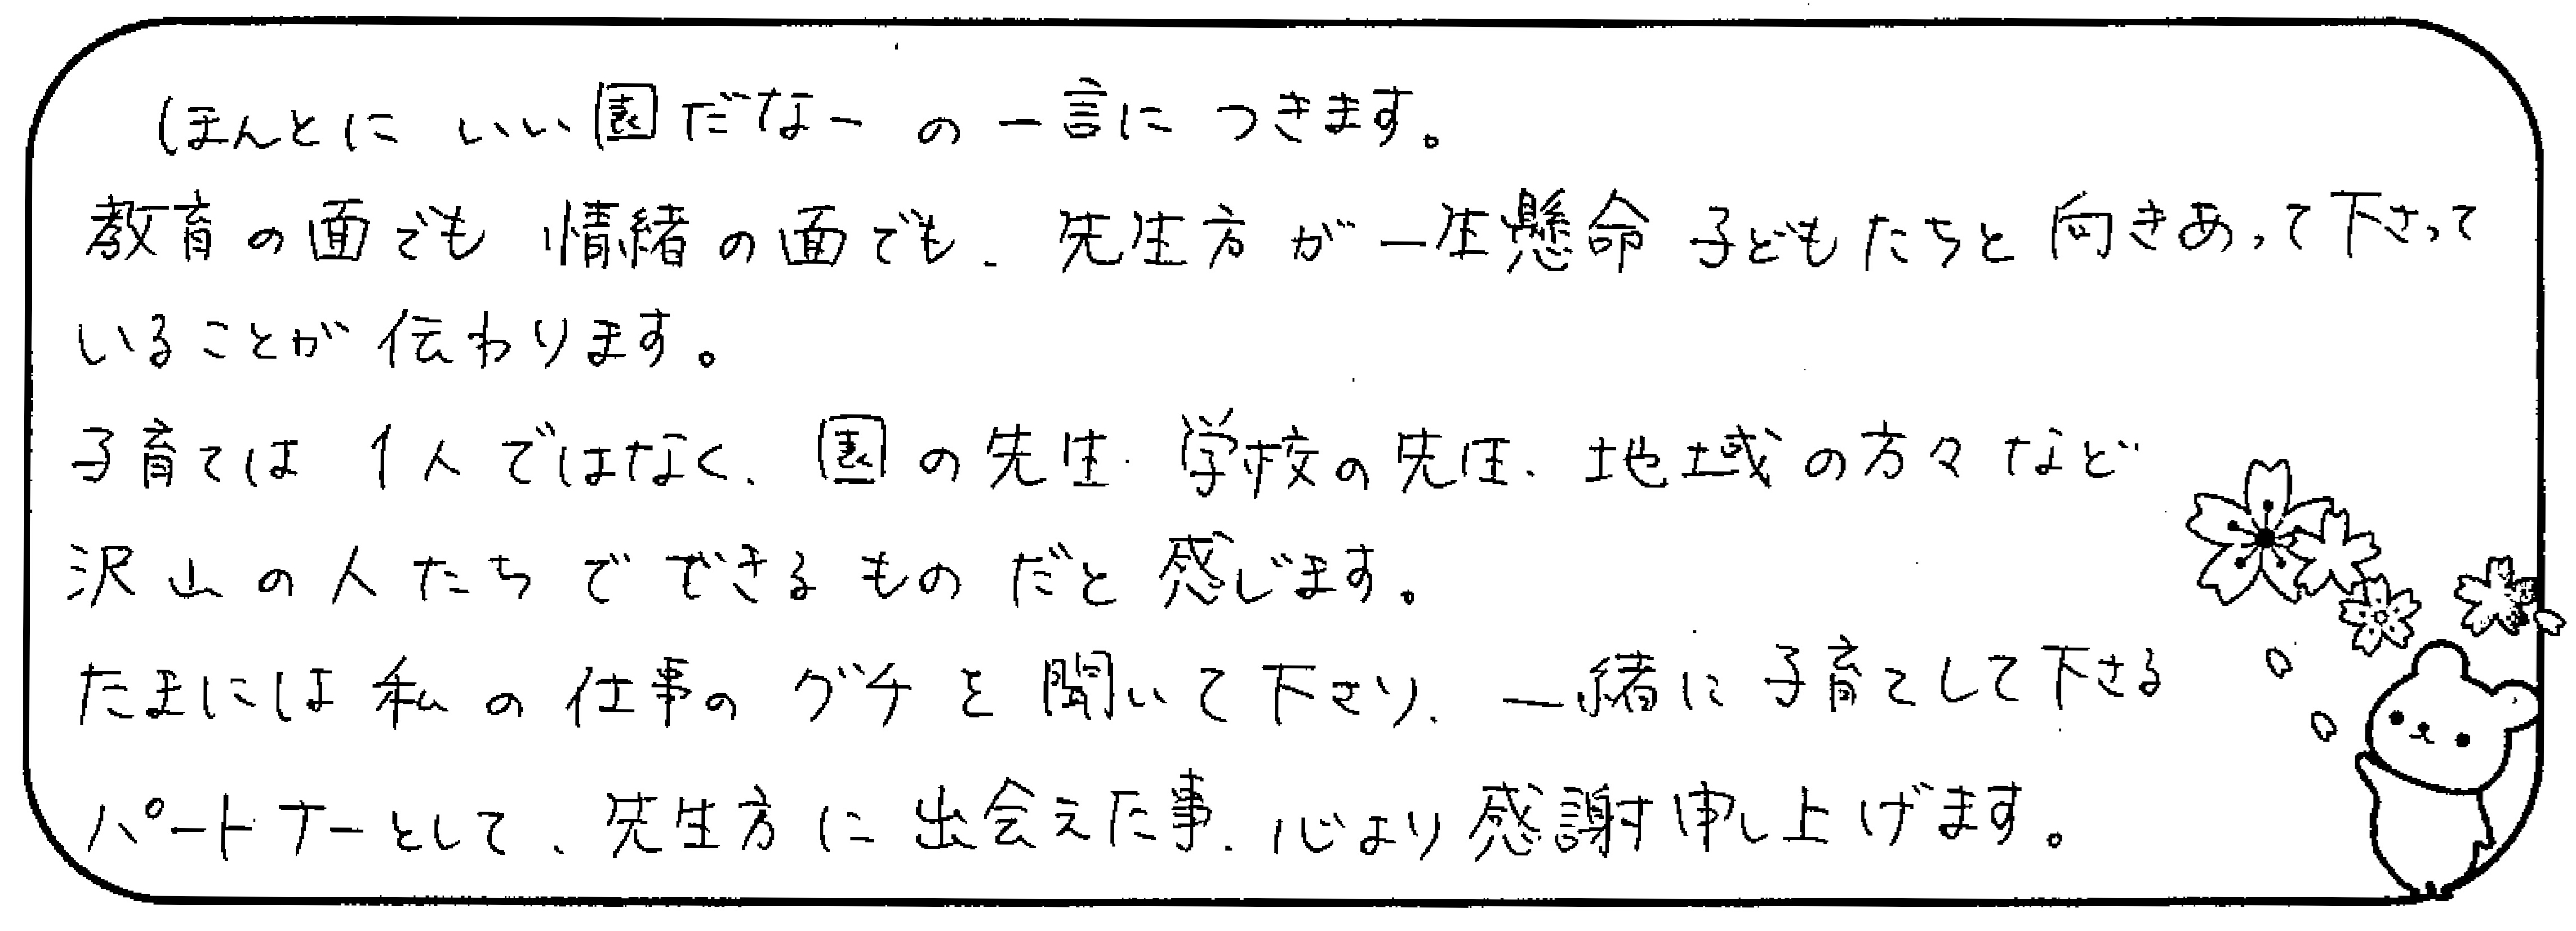 ほんとに いい園だなーの一言に つきます。
教育の面でも 情緒の面でも、先生方が一生懸命 子どもたちと向きあって下さって
いることが 伝わります。
子育ては 1人ではなく、園の先生、学校の先生、地域の方々など
沢山の人たちで できるものだと 感じます。
たまには 私の仕事の グチを聞いて下さり、一緒に子育てして下さる
パートナーとして、先生方に出会えた事、心より感謝申し上げます。